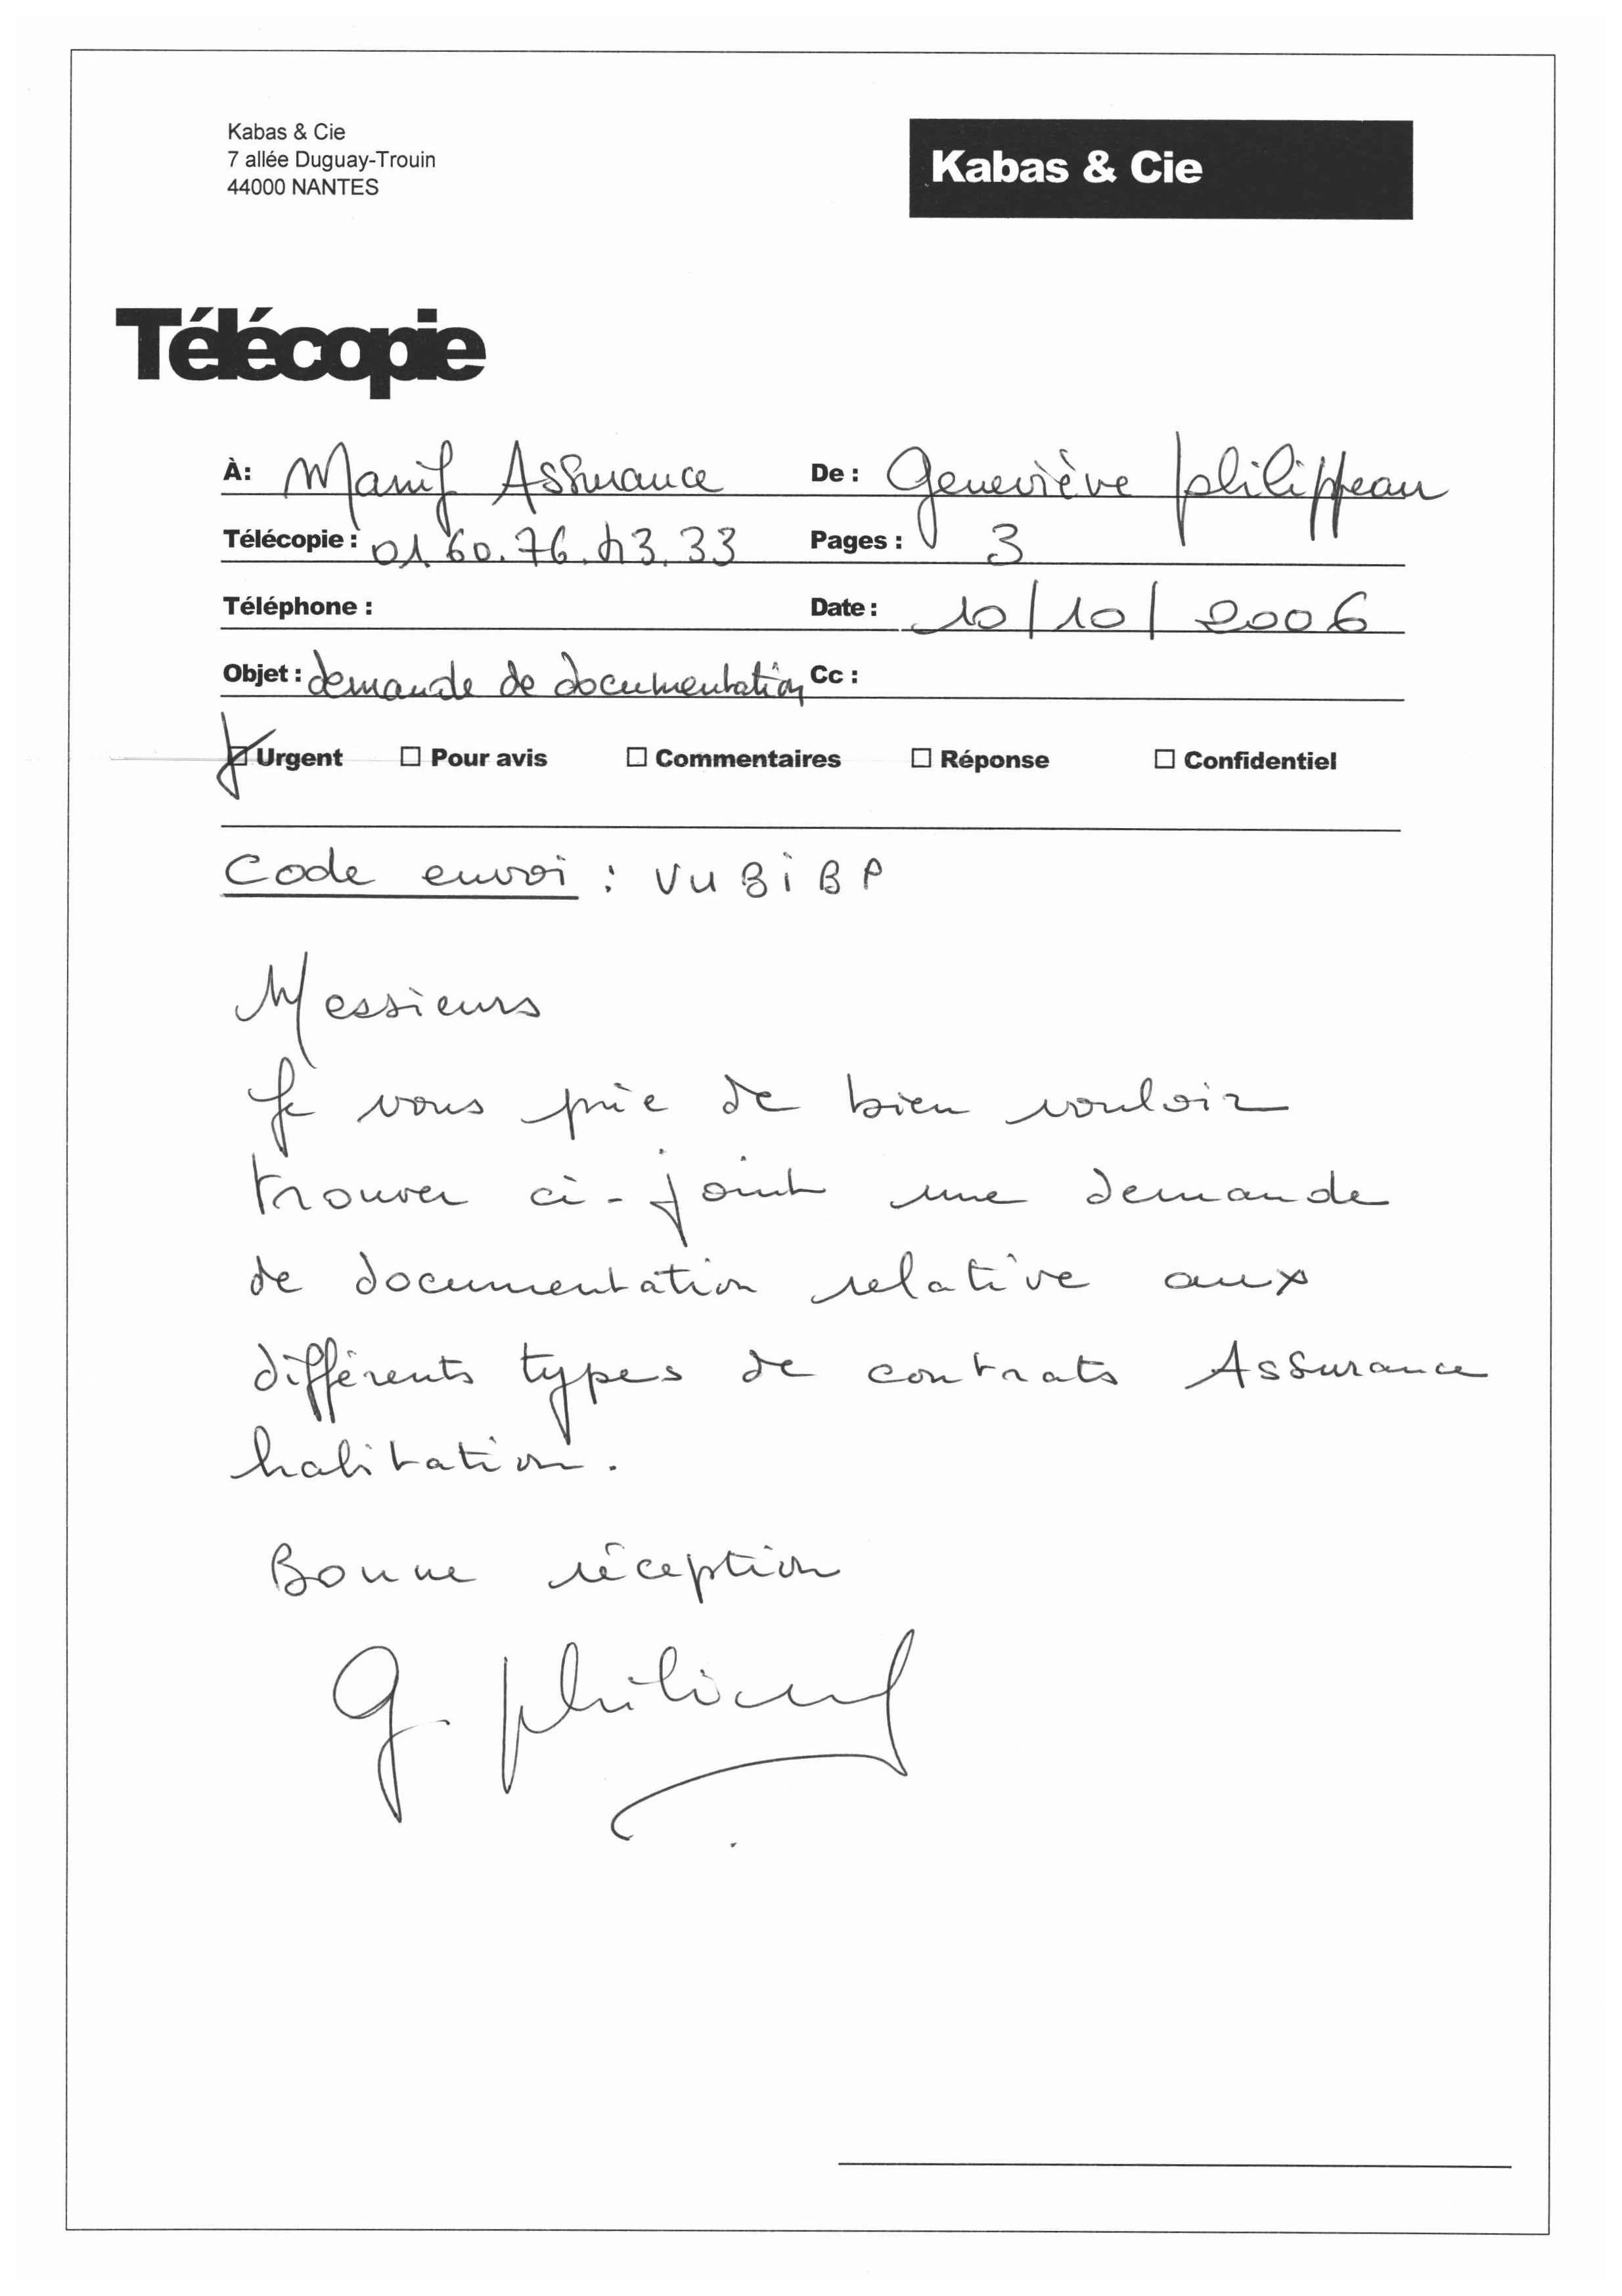 Kabas & Cie
7 allée Duguay-Trouin
44000 NANTES
Kabas & Cie
Télécopie
À: Manif Assurance De : Geneviève philippeau
Télécopie : 01.60.76.43.33 Pages : 3
Téléphone : Date : 10/10/2006
Objet : demande de documentation Cc :
Urgent Pour avis Commentaires Réponse Confidentiel
Code envoi :
Messieurs
Je vous prie de bien vouloir
trouver ci-joint une demande
de documentation relative aux
différents types de contrats Assurance
habitation.
Bonne réception